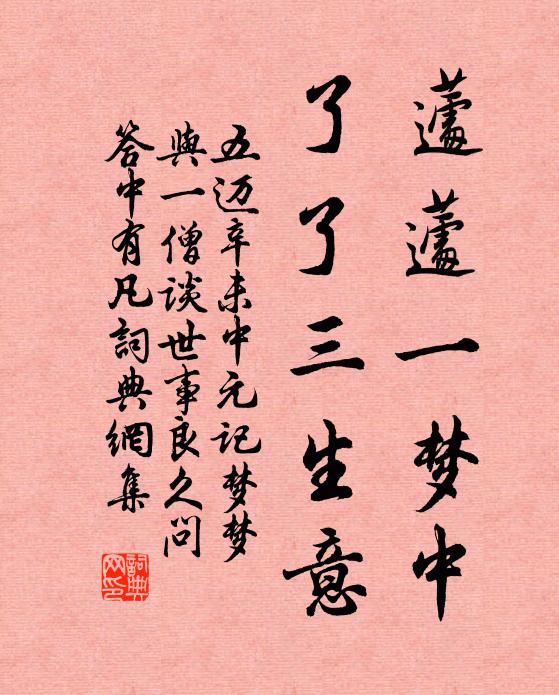 蘧蘧一梦中
了了三生意
五迈辛未中元记梦梦
與一僧談世事良久问
答中有凡詞典網集
詞典網印